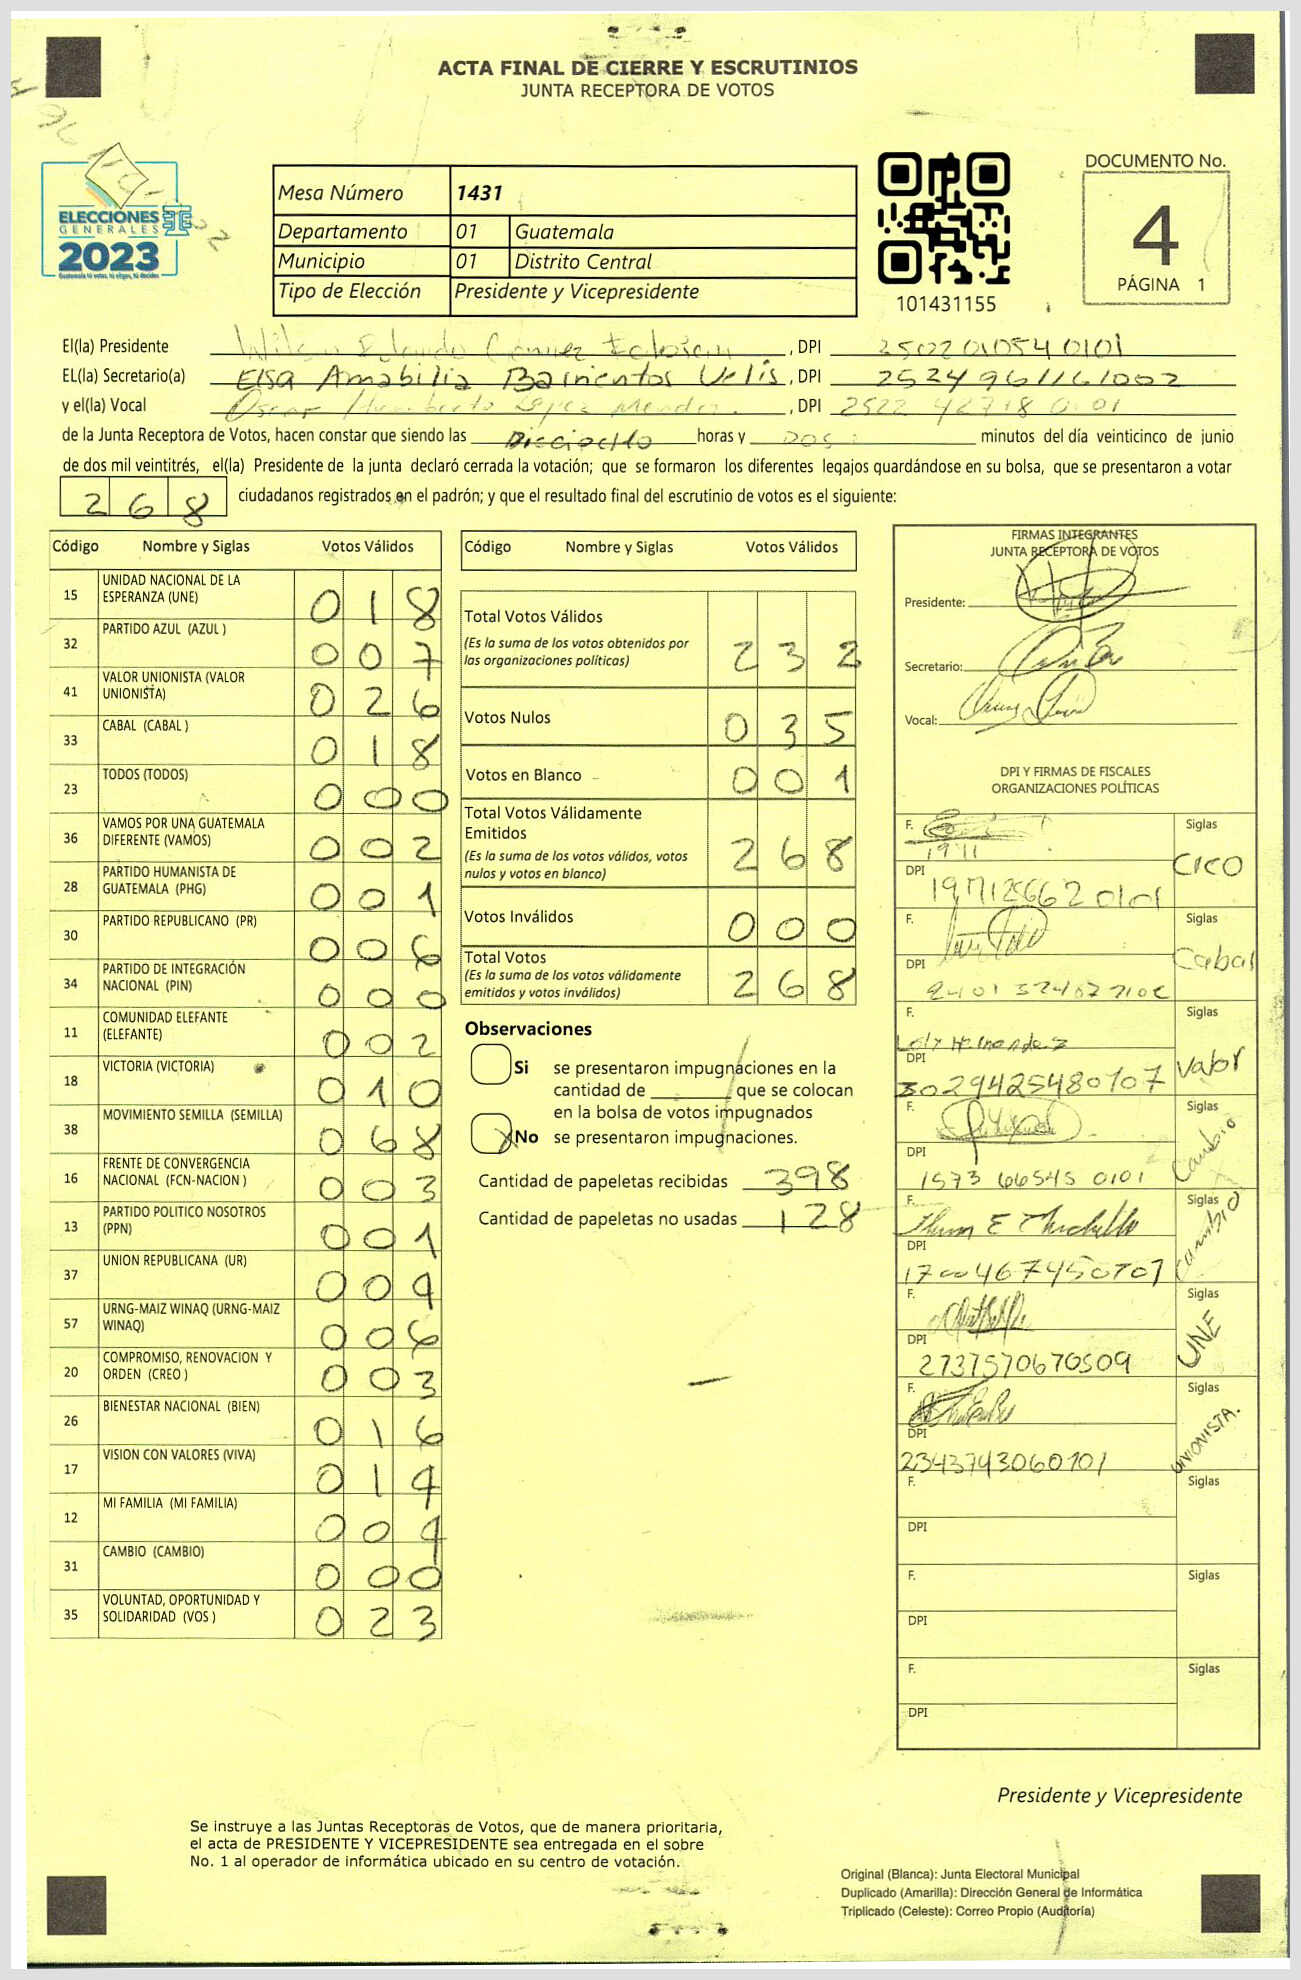 ACTA FINAL DE CIERRE Y ESCRUTINIOS
JUNTA RECEPTORA DE VOTOS
ELECCIONES
GENERALES
2023
Mesa Número 1431
Departamento 01 Guatemala
Municipio 01 Distrito Central
Tipo de Elección Presidente y Vicepresidente
101431155
DOCUMENTO No.
4
PÁGINA 1
El(la) Presidente , DPI
EL(la) Secretario(a) Elsa Amabilia Barrientos Velis , DPI 2524961161002
y el(la) Vocal Oscar Humberto López Mendez , DPI 2522 42718 0101
de la Junta Receptora de Votos, hacen constar que siendo las Dieciocho horas y Dos minutos del día veinticinco de junio
de dos mil veintitrés, el(la) Presidente de la junta declaró cerrada la votación; que se formaron los diferentes legajos guardándose en su bolsa, que se presentaron a votar
268 ciudadanos registrados en el padrón; y que el resultado final del escrutinio de votos es el siguiente:
Código Nombre y Siglas Votos Válidos
15 UNIDAD NACIONAL DE LA ESPERANZA (UNE) 018
32 PARTIDO AZUL (AZUL ) 007
41 VALOR UNIONISTA (VALOR UNIONISTA) 026
33 CABAL (CABAL ) 018
23 TODOS (TODOS) 000
36 VAMOS POR UNA GUATEMALA DIFERENTE (VAMOS) 002
28 PARTIDO HUMANISTA DE GUATEMALA (PHG) 001
30 PARTIDO REPUBLICANO (PR) 006
34 PARTIDO DE INTEGRACIÓN NACIONAL (PIN) 000
11 COMUNIDAD ELEFANTE (ELEFANTE) 002
18 VICTORIA (VICTORIA) 010
38 MOVIMIENTO SEMILLA (SEMILLA) 068
16 FRENTE DE CONVERGENCIA NACIONAL (FCN-NACION ) 003
13 PARTIDO POLITICO NOSOTROS (PPN) 001
37 UNION REPUBLICANA (UR) 004
57 URNG-MAIZ WINAQ (URNG-MAIZ WINAQ) 006
20 COMPROMISO, RENOVACION Y ORDEN (CREO ) 003
26 BIENESTAR NACIONAL (BIEN) 016
17 VISION CON VALORES (VIVA) 014
12 MI FAMILIA (MI FAMILIA) 004
31 CAMBIO (CAMBIO) 000
35 VOLUNTAD, OPORTUNIDAD Y SOLIDARIDAD (VOS ) 023
Código Nombre y Siglas Votos Válidos
Total Votos Válidos 232
(Es la suma de los votos obtenidos por
las organizaciones políticas)
Votos Nulos 035
Votos en Blanco 001
Total Votos Válidamente
Emitidos 268
(Es la suma de los votos válidos, votos
nulos y votos en blanco)
Votos Inválidos 000
Total Votos 268
(Es la suma de los votos válidamente
emitidos y votos inválidos)
Observaciones
Si se presentaron impugnaciones en la
cantidad de que se colocan
en la bolsa de votos impugnados
X No se presentaron impugnaciones.
Cantidad de papeletas recibidas 398
Cantidad de papeletas no usadas 128
FIRMAS INTEGRANTES
JUNTA RECEPTORA DE VOTOS
Presidente:
Secretario:
Vocal:
DPI Y FIRMAS DE FISCALES
ORGANIZACIONES POLÍTICAS
F. Siglas
DPI CICO
F. Siglas
DPI Cabal
F. Siglas
DPI 3029425480107 Valor
F. Siglas
DPI 1573 66545 0101 Cambio
F. Siglas
DPI 1700467450707 Cambio
F. Siglas
DPI 2737570670509 UNE
F. Siglas
DPI 2343743060101 UNIONISTA.
F. Siglas
DPI
F. Siglas
DPI
F. Siglas
DPI
Presidente y Vicepresidente
Se instruye a las Juntas Receptoras de Votos, que de manera prioritaria,
el acta de PRESIDENTE Y VICEPRESIDENTE sea entregada en el sobre
No. 1 al operador de informática ubicado en su centro de votación.
Original (Blanca): Junta Electoral Municipal
Duplicado (Amarilla): Dirección General de Informática
Triplicado (Celeste): Correo Propio (Auditoría)